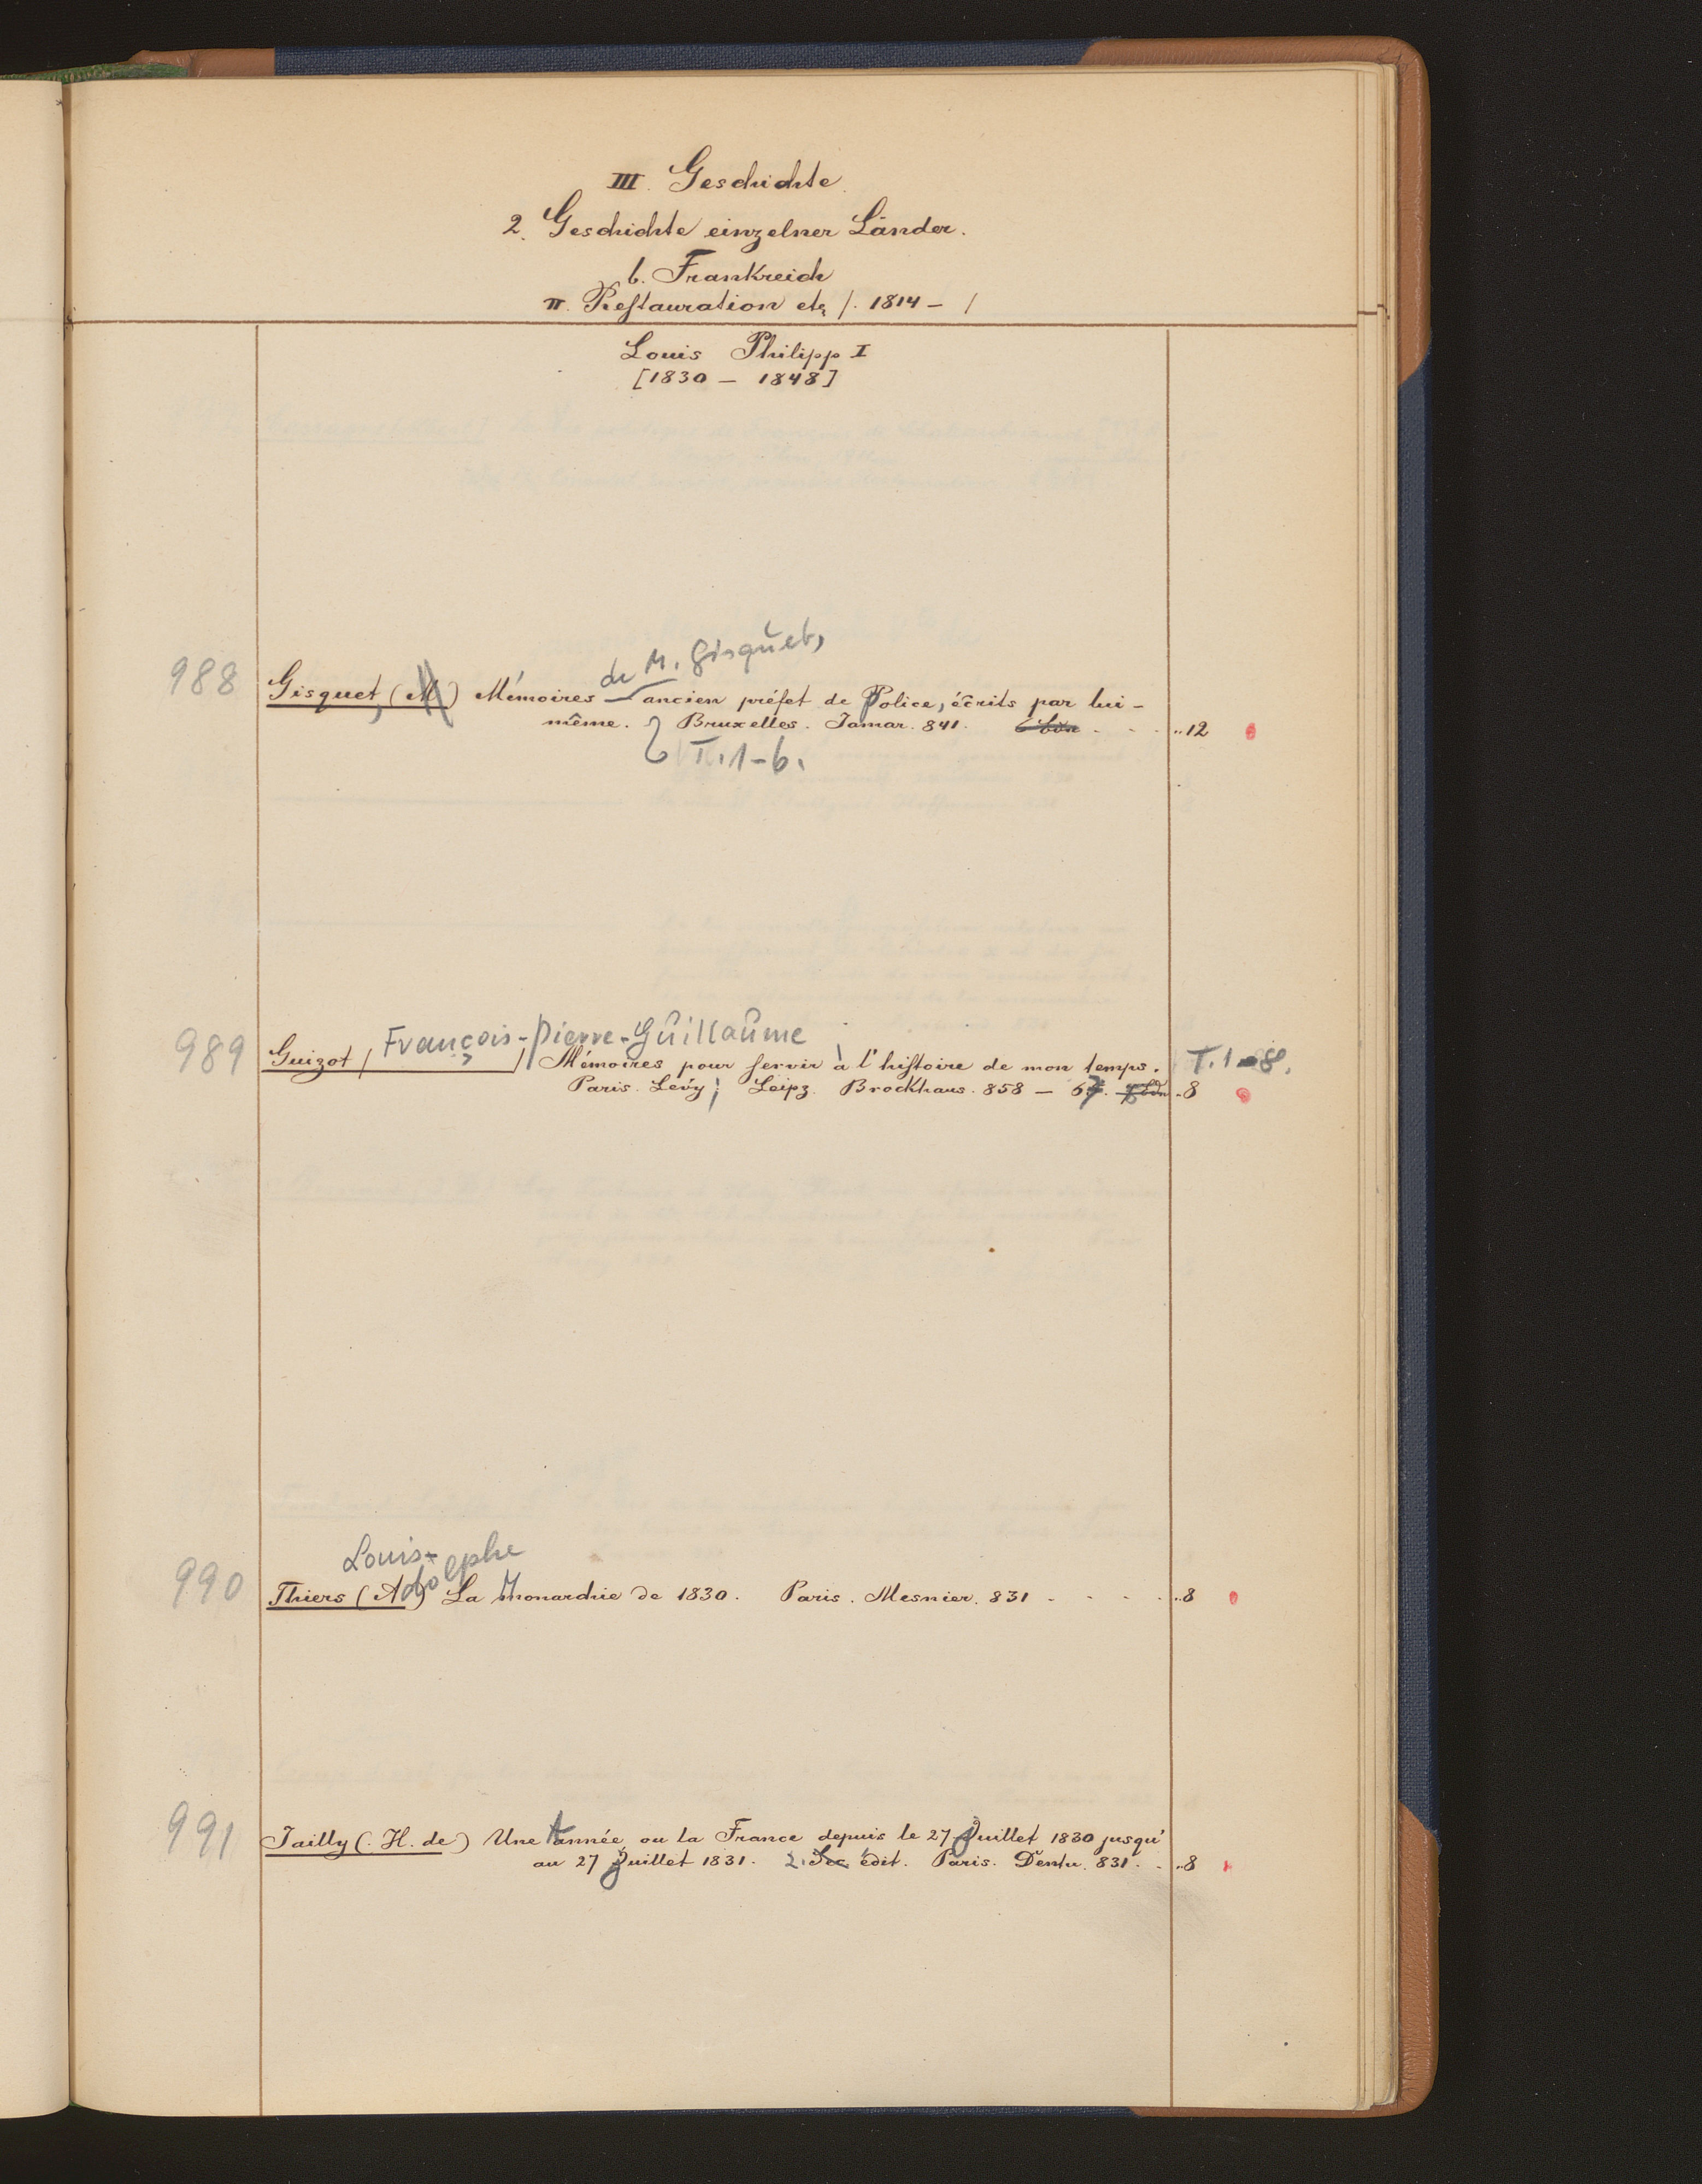 III. Geschichte.
2. Geschichte einzelner Länder.
b. Frankreich
II. Restauration etc /. 1814 - /
Louis Philipp I
[1830 - 1848]
de M. Gisquet,
988 Gisquet, (M) Mémoires ancien préfet de Police, écrits par lui-
même. Bruxelles. Jamar. 841. 6 bdn . . . ..12
T. 1-6.
François-Pierre-Guillaume
989 Guizot / / Mémoires pour servir à l'histoire de mon temps. T. 1-8.
Paris. Levy; Leipz. Brockhaus. 858 - 67. bdn ..8
Louis-
990 Thiers (Adolphe) La Monarchie de 1830. Paris. Mesnier. 831 . . . . ..8
991 Tailly (. H. de) Une Année, ou la France depuis le 27 juillet 1830 jusqu'
au 27 juillet 1831. 2. Sec édit. Paris. Dentu. 831. . ..8